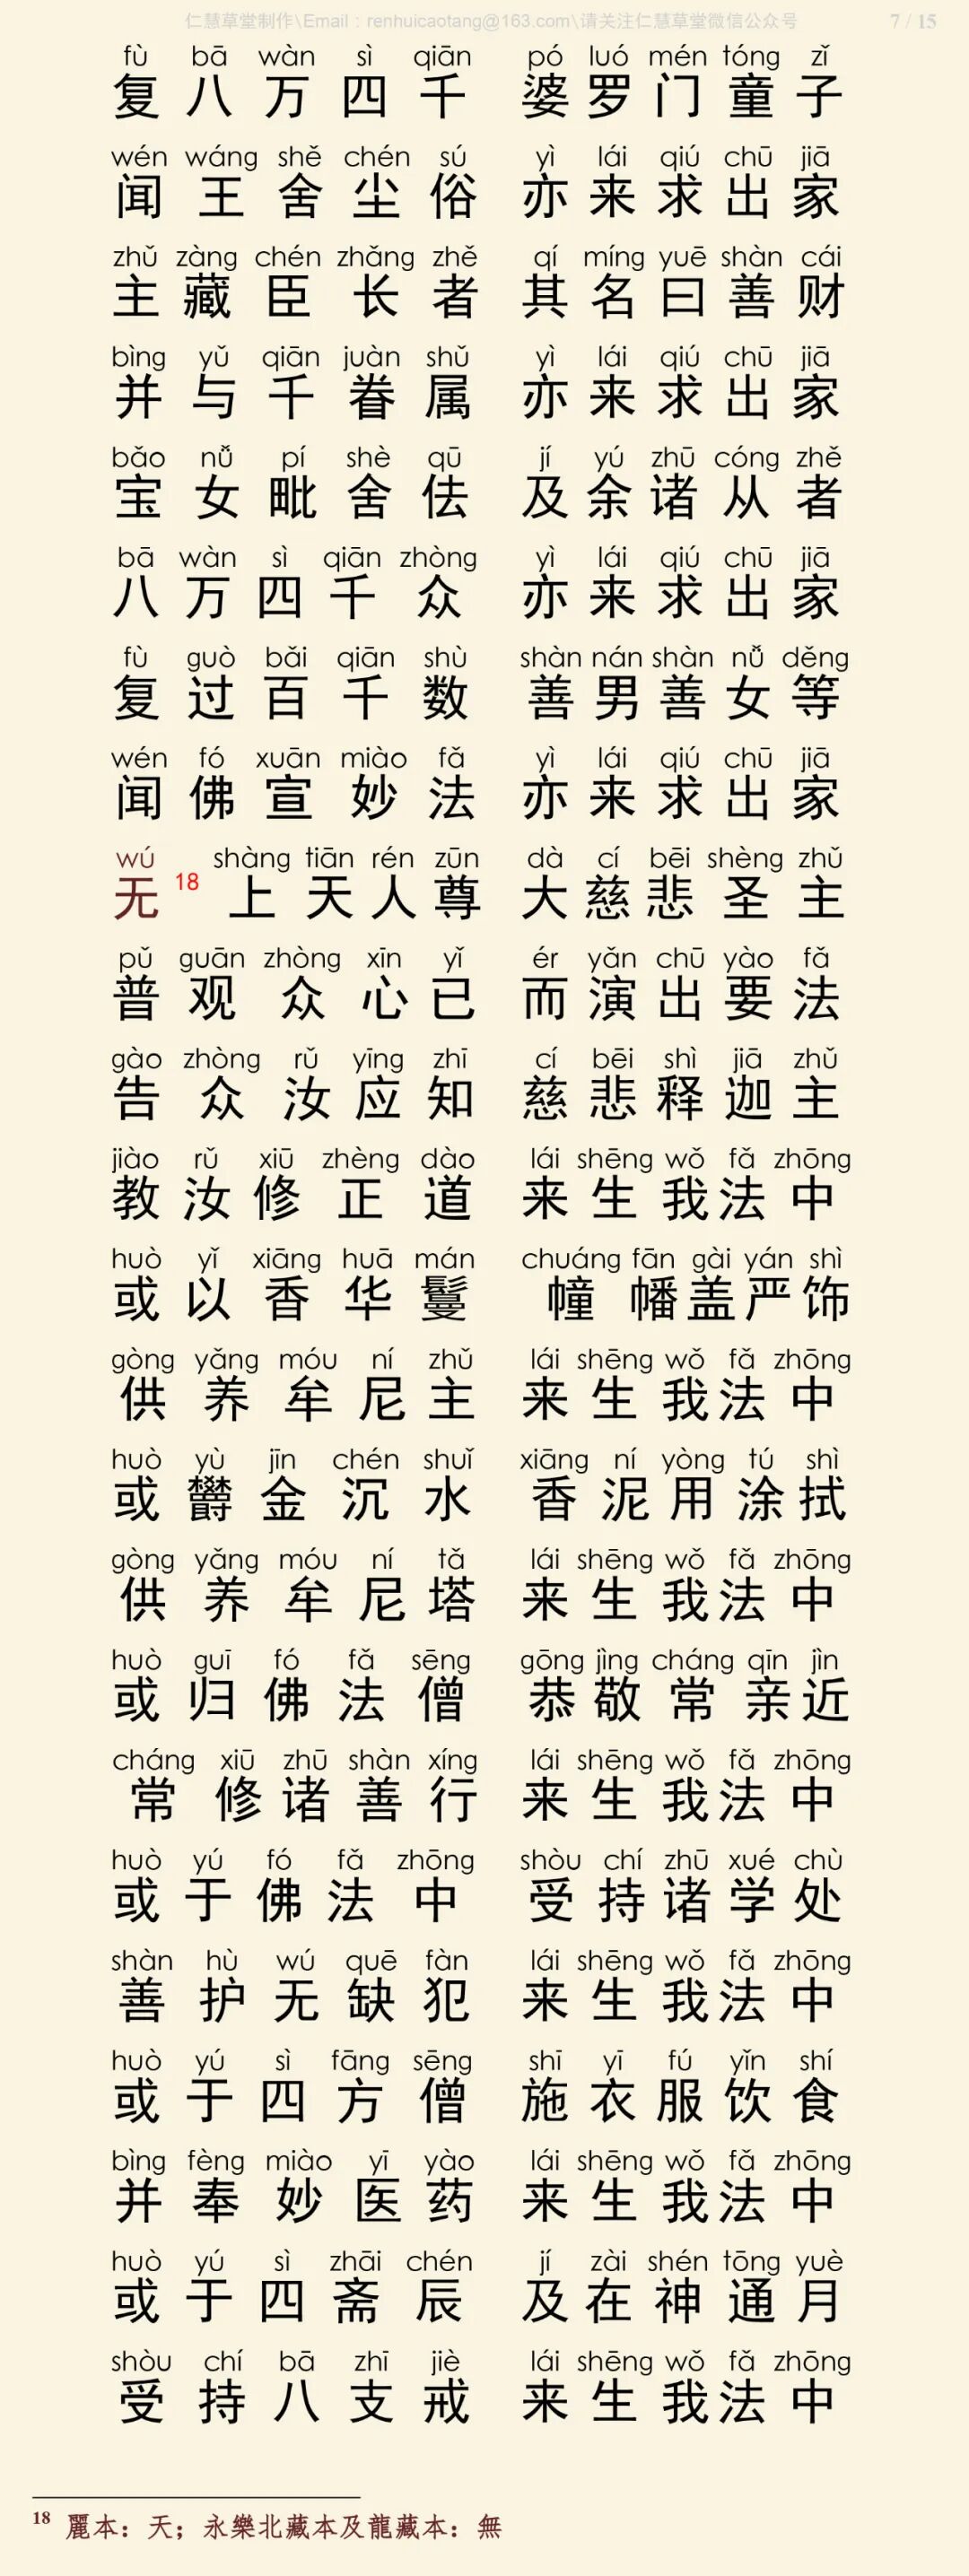 仁慧草堂制作\Email：renhuicaotang@163.com\请关注仁慧草堂微信公众号 7 / 15
fù bā wàn sì qiān pó luó mén tóng zǐ
复八万四千 婆罗门童子
wén wáng shě chén sú yì lái qiú chū jiā
闻王舍尘俗 亦来求出家
zhǔ zàng chén zhǎng zhě qí míng yuē shàn cái
主藏臣长者 其名曰善财
bìng yǔ qiān juàn shǔ yì lái qiú chū jiā
并与千眷属 亦来求出家
bǎo nǚ pí shè qū jí yú zhū cóng zhě
宝女毗舍佉 及余诸从者
bā wàn sì qiān zhòng yì lái qiú chū jiā
八万四千众 亦来求出家
fù guò bǎi qiān shù shàn nán shàn nǚ děng
复过百千数 善男善女等
wén fó xuān miào fǎ yì lái qiú chū jiā
闻佛宣妙法 亦来求出家
wú shàng tiān rén zūn dà cí bēi shèng zhǔ
无18上天人尊 大慈悲圣主
pǔ guān zhòng xīn yǐ ér yǎn chū yào fǎ
普观众心已 而演出要法
gào zhòng rǔ yīng zhī cí bēi shì jiā zhǔ
告众汝应知 慈悲释迦主
jiào rǔ xiū zhèng dào lái shēng wǒ fǎ zhōng
教汝修正道 来生我法中
huò yǐ xiāng huā mán chuáng fān gài yán shì
或以香华鬘 幢幡盖严饰
gòng yǎng móu ní zhǔ lái shēng wǒ fǎ zhōng
供养牟尼主 来生我法中
huò yù jīn chén shuǐ xiāng ní yòng tú shì
或欝金沉水 香泥用涂拭
gòng yǎng móu ní tǎ lái shēng wǒ fǎ zhōng
供养牟尼塔 来生我法中
huò guī fó fǎ sēng gōng jìng cháng qīn jìn
或归佛法僧 恭敬常亲近
cháng xiū zhū shàn xíng lái shēng wǒ fǎ zhōng
常修诸善行 来生我法中
huò yú fó fǎ zhōng shòu chí zhū xué chù
或于佛法中 受持诸学处
shàn hù wú quē fàn lái shēng wǒ fǎ zhōng
善护无缺犯 来生我法中
huò yú sì fāng sēng shī yī fú yǐn shí
或于四方僧 施衣服饮食
bìng fèng miào yī yào lái shēng wǒ fǎ zhōng
并奉妙医药 来生我法中
huò yú sì zhāi chén jí zài shén tōng yuè
或于四斋辰 及在神通月
shòu chí bā zhī jiè lái shēng wǒ fǎ zhōng
受持八支戒 来生我法中
18 麗本：天；永樂北藏本及龍藏本：無